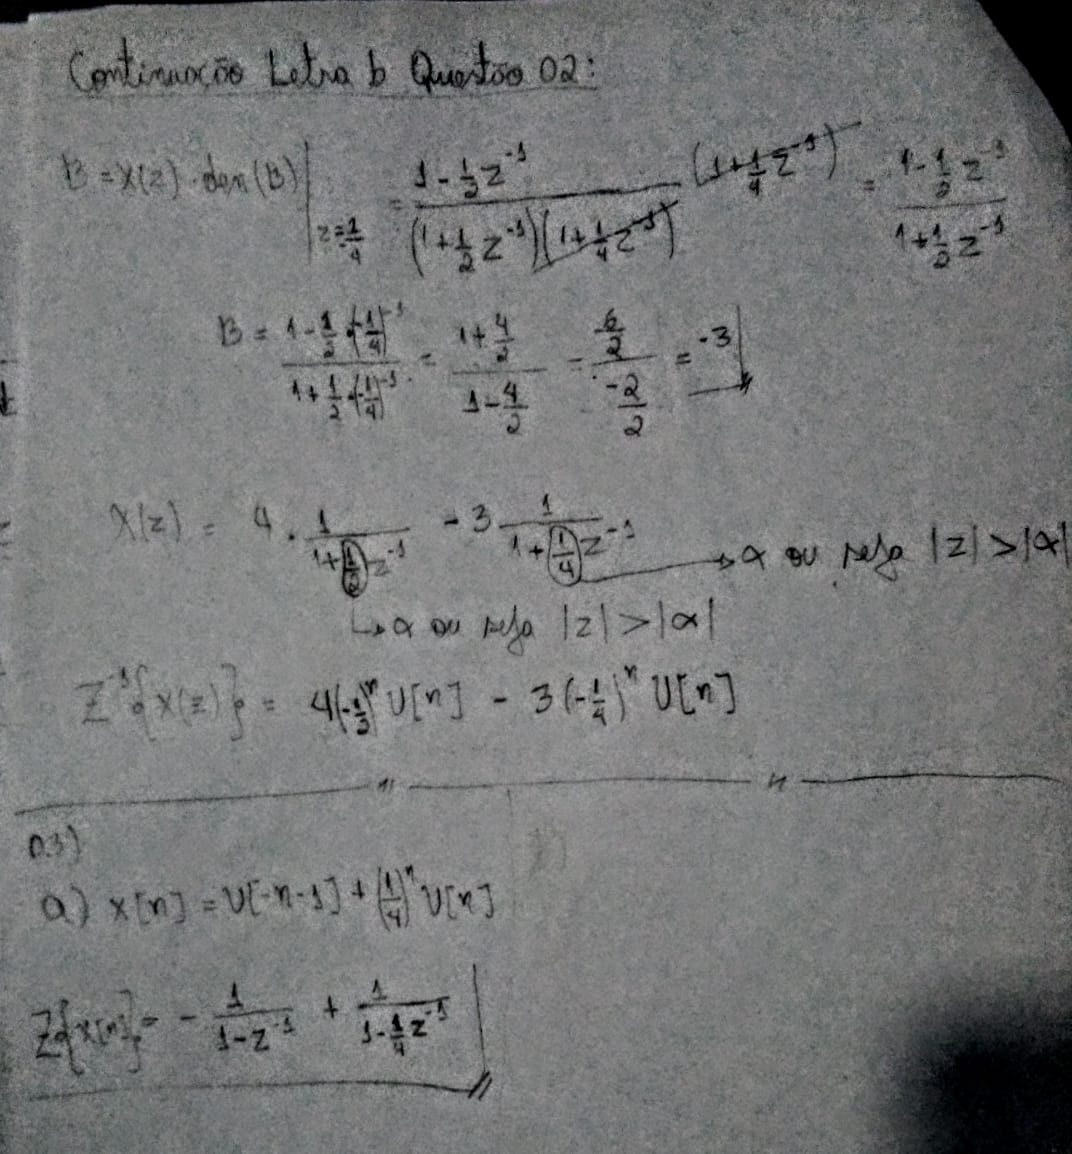 Continuação Letra b Questão 02:
B = X(z) · den(B) |_{z=-1/4} = (1 - 1/2 z^-1) / ((1 + 1/2 z^-1)(1 + 1/4 z^-1)) (1 + 1/4 z^-1) = (1 - 1/2 z^-1) / (1 + 1/2 z^-1)
B = (1 - 1/2 · (-1/4)^-1) / (1 + 1/2 · (-1/4)^-1) = (1 + 4/2) / (1 - 4/2) = (6/2) / (-2/2) = -3
X(z) = 4 · 1 / (1 + 1/2 z^-1) - 3 1 / (1 + 1/4 z^-1) → α ou seja |z| > |α|
↳ α ou seja |z| > |α|
Z^-1{X(z)} = 4(-1/3)^n U[n] - 3(-1/4)^n U[n]
03)
a) x[n] = U[-n-1] + (1/4)^n U[n]
Z{x[n]} = - 1 / (1 - z^-1) + 1 / (1 - 1/4 z^-1)